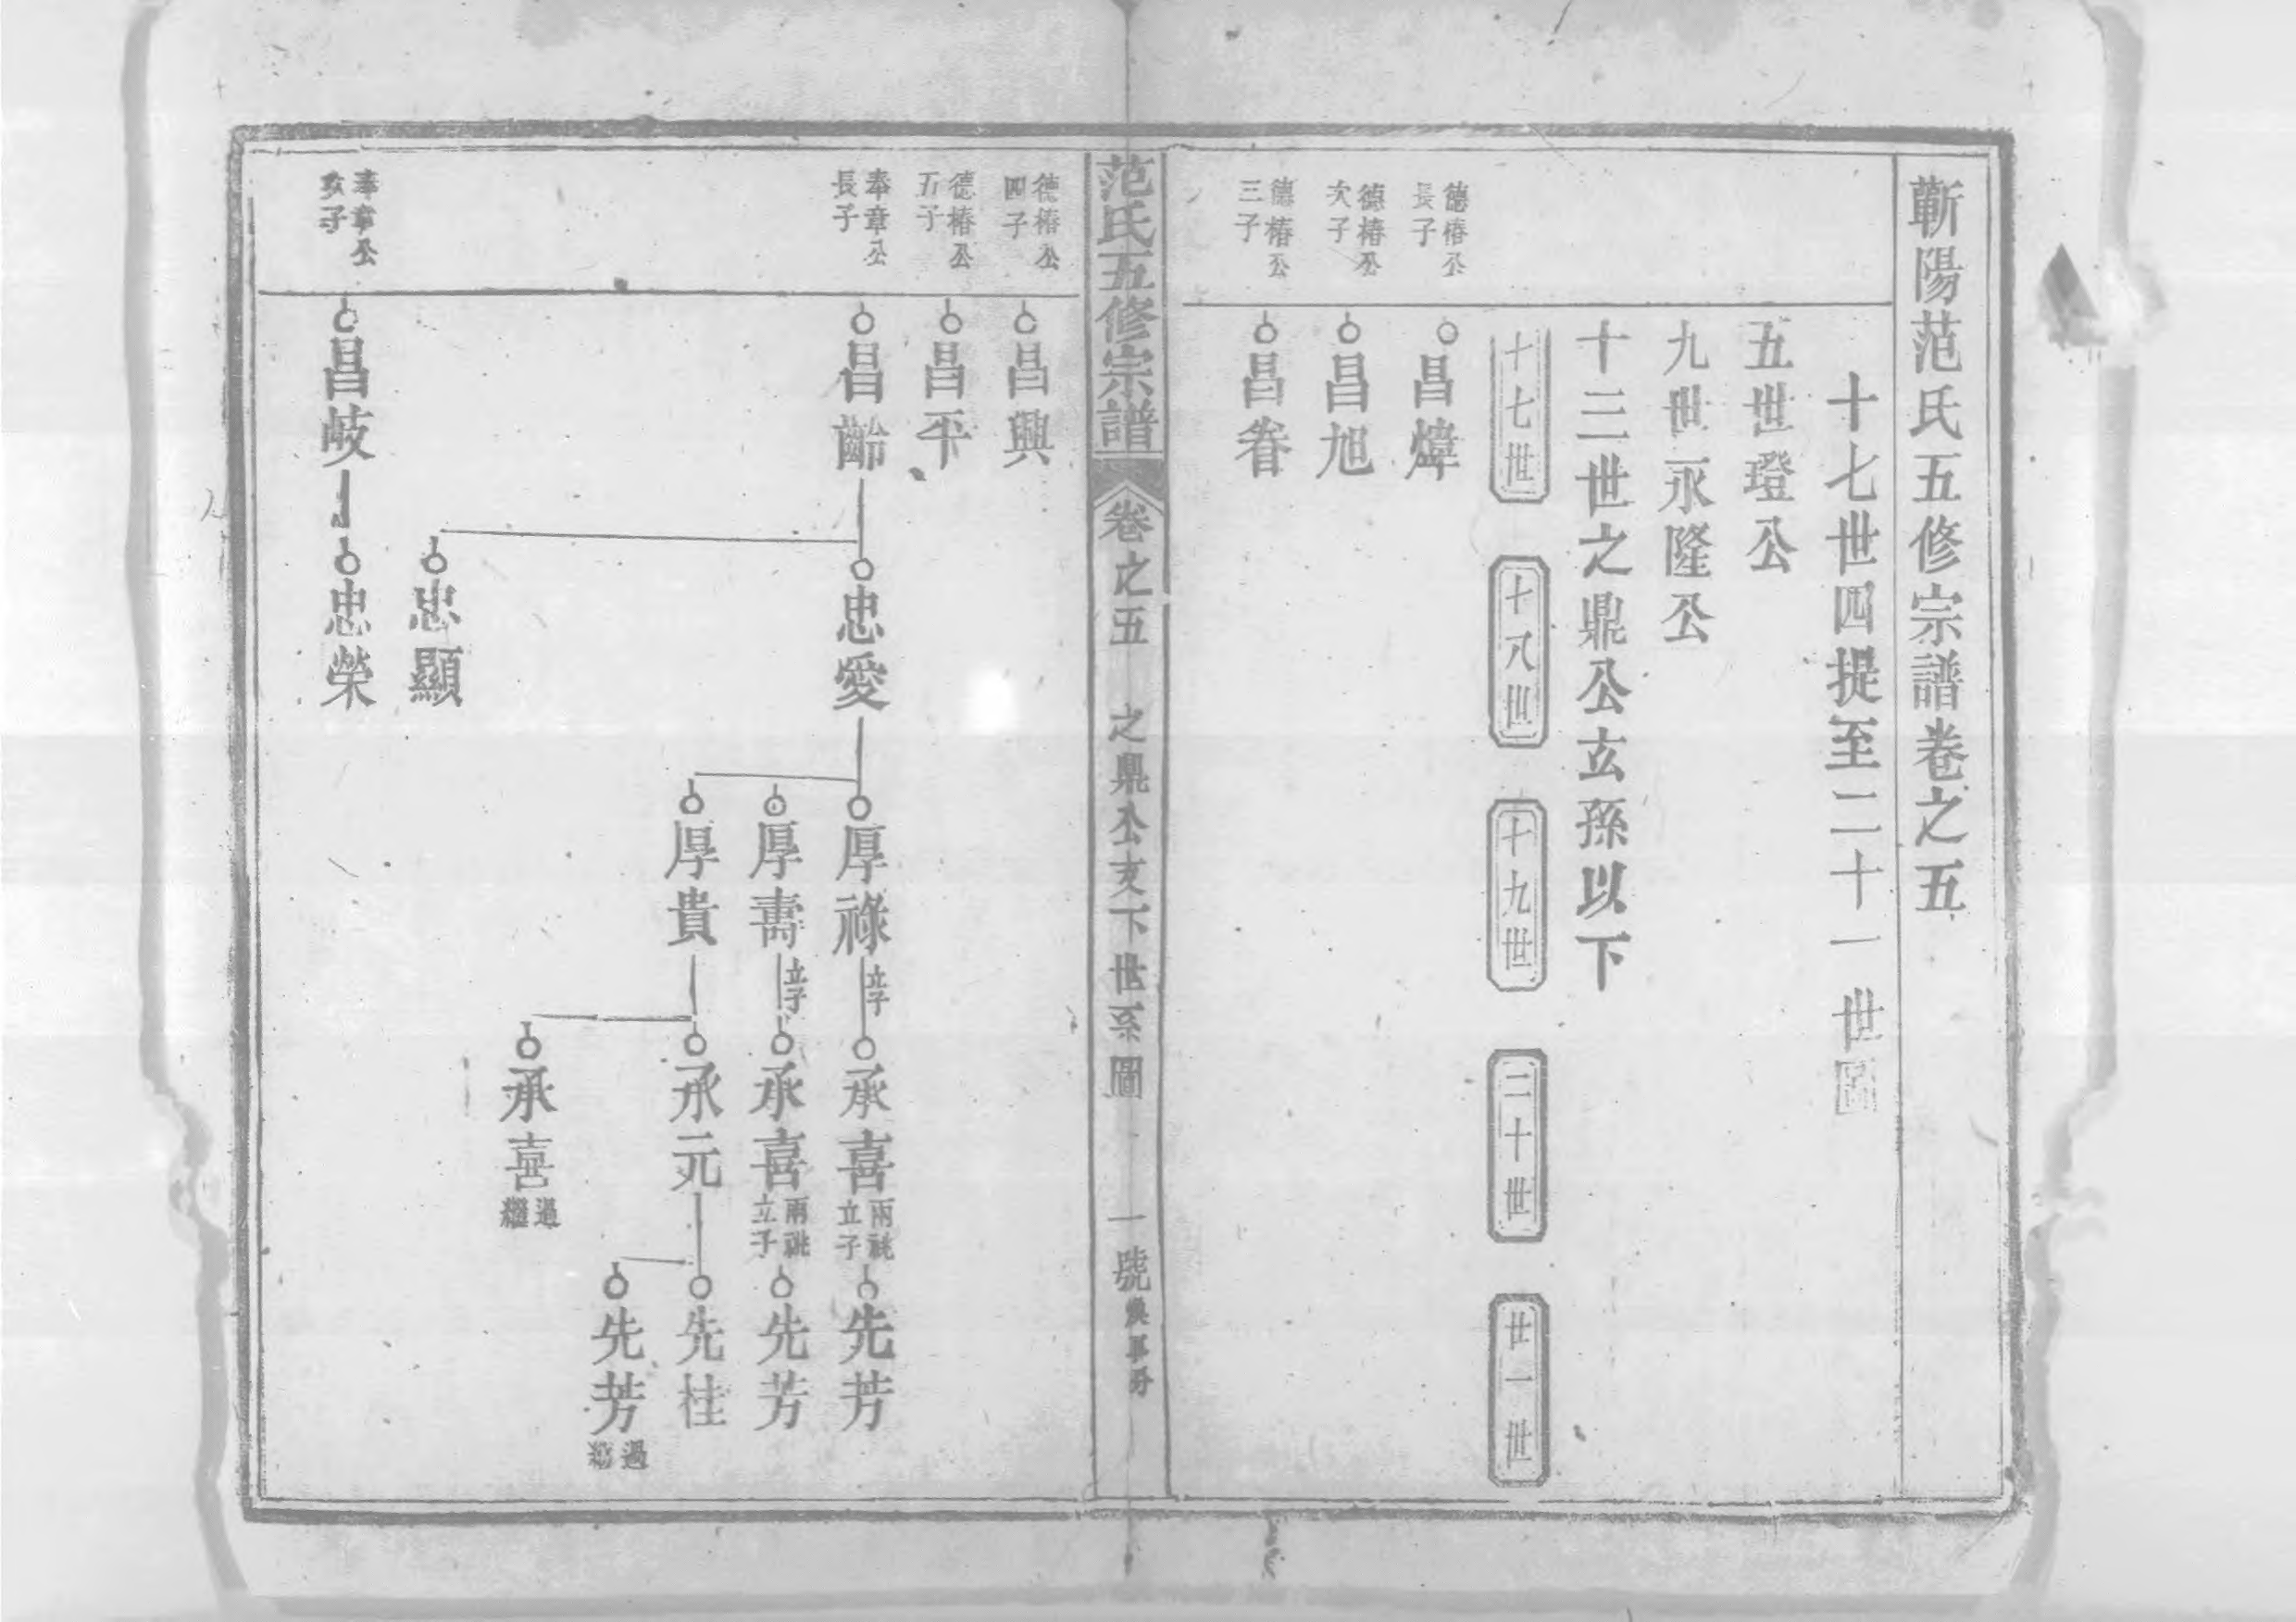 蘄陽范氏五修宗譜卷之五
十七世四提至二十一世圖
五世璒公
九世永隆公
十三世之鼎公玄孫以下
十七世
十八世
十九世
二十世
廿一世
德椿公長子
昌煒
德椿公次子
昌旭
德椿公三子
昌眷
范氏五修宗譜 卷之五 之鼎公支下世系圖 一號
德椿公四子
昌興
德椿公五子
昌平
奉章公長子
昌齡
忠愛
厚祿
立子
承喜
兩祧立子
先芳
厚壽
立子
承喜
兩祧立子
先芳
厚貴
承元
先桂
先芳
過繼
承喜
過繼
忠顯
奉章公次子
昌岐
忠榮